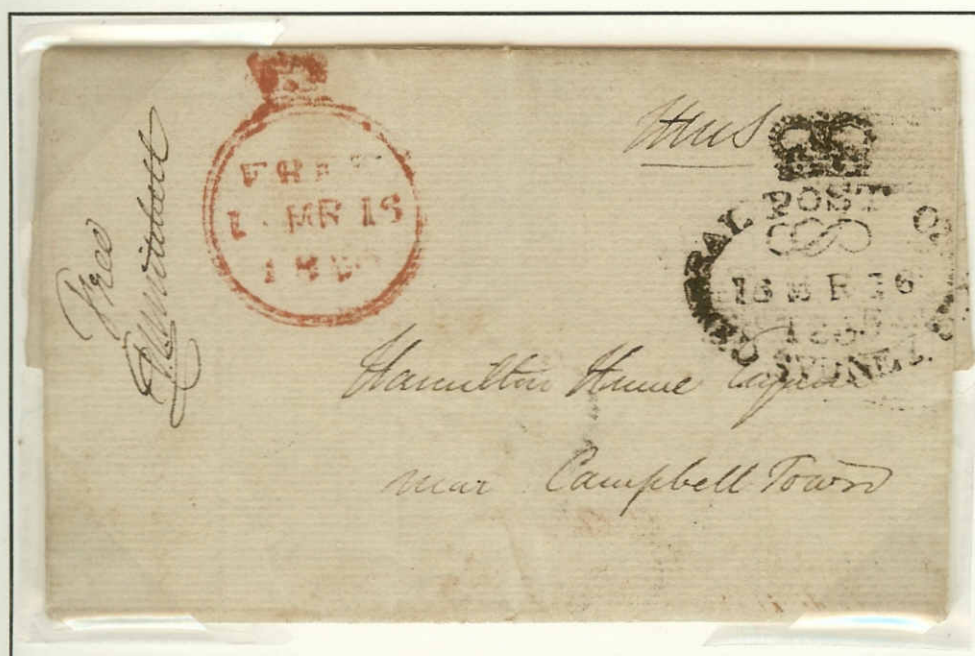 Free
FREE
MR 16
HMS
GENERAL POST
16 MR 16
SYDNEY
Hamilton Hume Esquire
near Campbell Town